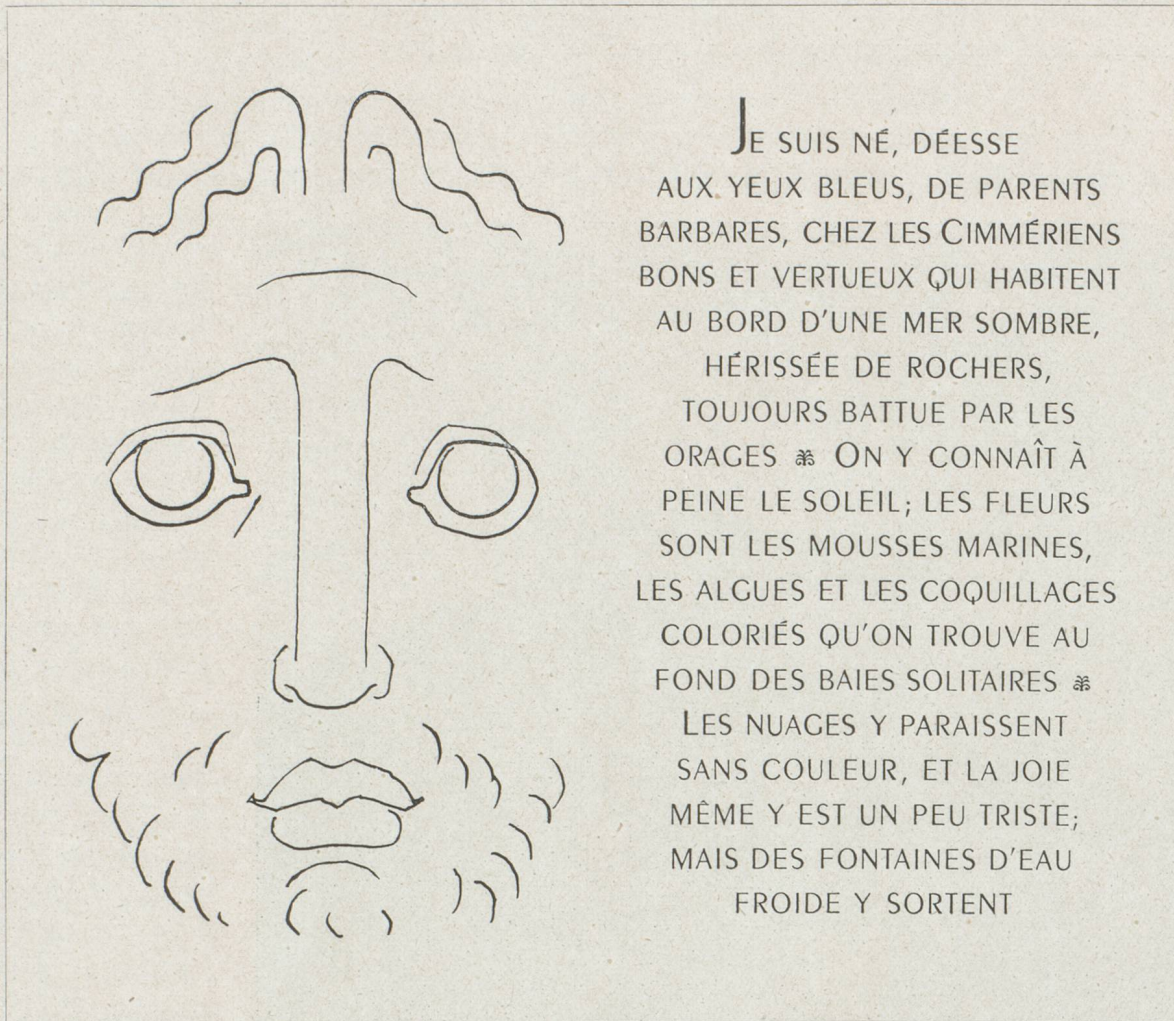 JE SUIS NÉ, DÉESSE
AUX YEUX BLEUS, DE PARENTS
BARBARES, CHEZ LES CIMMÉRIENS
BONS ET VERTUEUX QUI HABITENT
AU BORD D'UNE MER SOMBRE,
HÉRISSÉE DE ROCHERS,
TOUJOURS BATTUE PAR LES
ORAGES ON Y CONNAÎT À
PEINE LE SOLEIL; LES FLEURS
SONT LES MOUSSES MARINES,
LES ALGUES ET LES COQUILLAGES
COLORIÉS QU'ON TROUVE AU
FOND DES BAIES SOLITAIRES
LES NUAGES Y PARAISSENT
SANS COULEUR, ET LA JOIE
MÊME Y EST UN PEU TRISTE;
MAIS DES FONTAINES D'EAU
FROIDE Y SORTENT